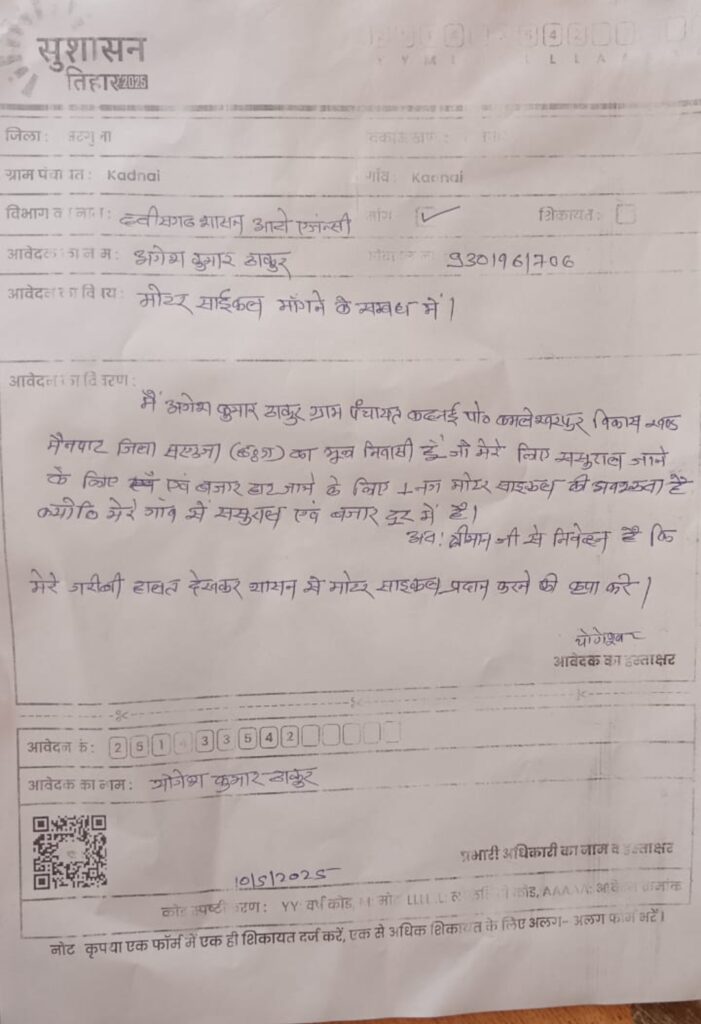 सुशासन
तिहार 2025
जिला:
ग्राम पंचायत: Kadnai
गाँव: Kadnai
विभाग का नाम: छत्तीसगढ शासन आटो एजंन्सी
मांग ✓
शिकायत:
आवेदक का नाम: योगेश कुमार ठाकुर
9301961706
आवेदन का विषय: मोटर साईकल माँगने के सम्बध में।
आवेदन का विवरण:
मैं योगेश कुमार ठाकुर ग्राम पंचायत कदनई पो० कमलेश्वरपुर विकास खण्ड
मैनपाट जिला सरगुजा (छ०ग) का मुल निवासी हूँ जो मेरे लिए ससुराल जाने
के लिए एवं बजार हाट जाने के लिए 1 नग मोटर साइकल की आवश्कता है
क्योकि मेरे गांव से ससुराल एवं बजार दुर में है।
अतः श्रीमान जी से निवेदन है कि
मेरे गरीबी हालत देखकर शासन से मोटर साइकल प्रदान करने की कृपा करे।
योगेश्वर
आवेदक का हस्ताक्षर
आवेदन क्रं: 251 33542
आवेदक का नाम: योगेश कुमार ठाकुर
प्रभारी अधिकारी का नाम व हस्ताक्षर
10/5/2025
YY वर्ष कोड,
नोट कृपया एक फॉर्म में एक ही शिकायत दर्ज करें, एक से अधिक शिकायत के लिए अलग- अलग फॉर्म भरें।